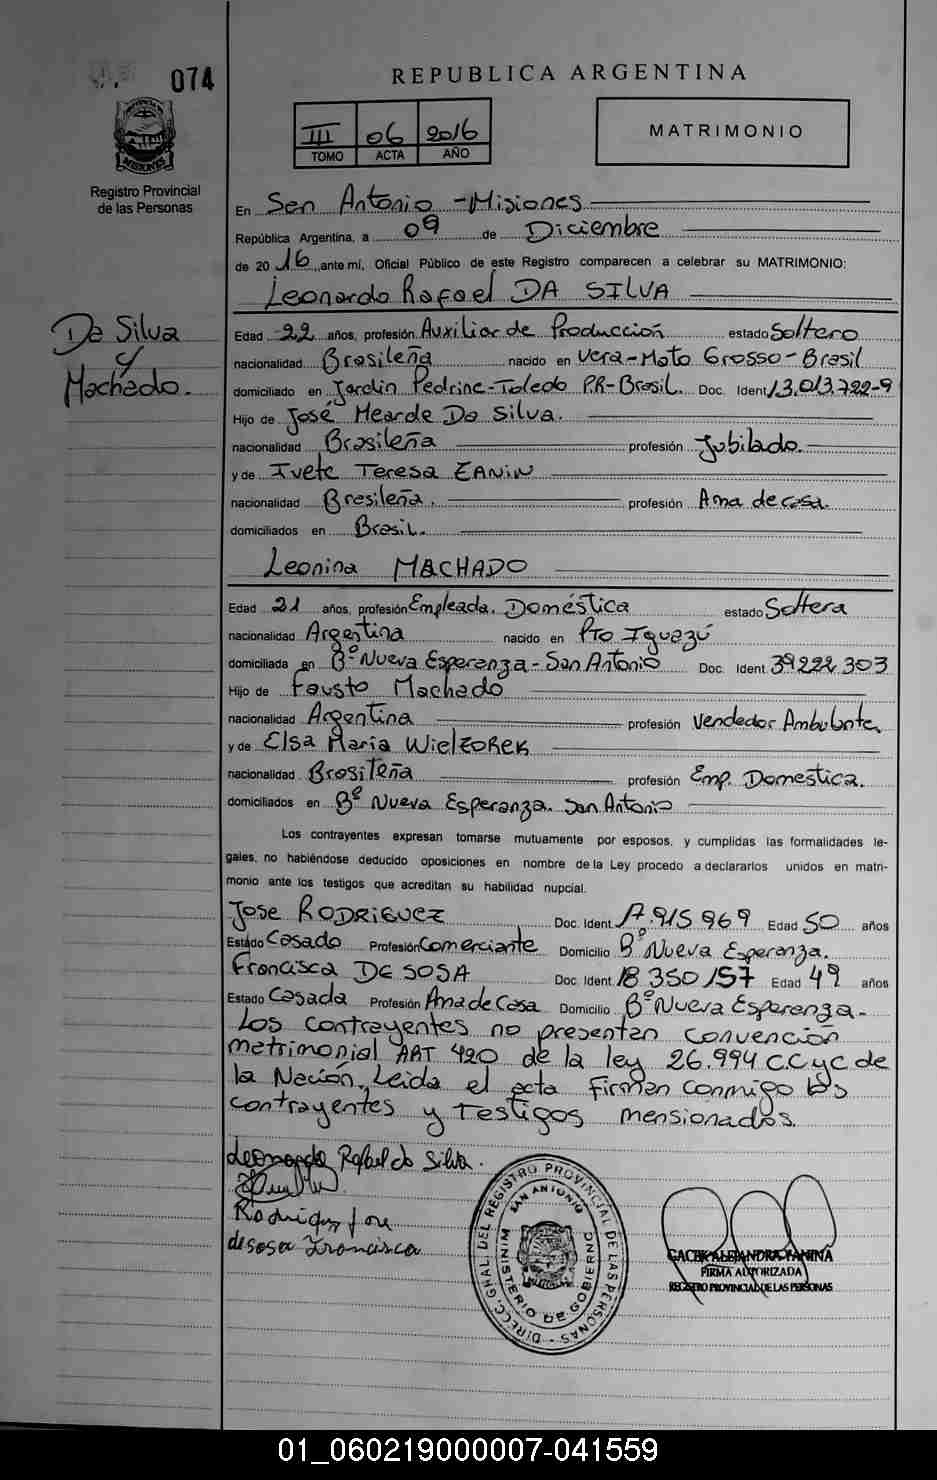 074
REPUBLICA ARGENTINA
III 06 2016
TOMO ACTA AÑO
MATRIMONIO
PROVINCIA DE
MISIONES
Registro Provincial
de las Personas
En San Antonio - Misiones
República Argentina, a 09 de Diciembre
de 2016, ante mí, Oficial Público de este Registro comparecen a celebrar su MATRIMONIO:
Leonardo Rafael DA SILVA
Da Silva
y
Machado.
Edad 22 años, profesión Auxiliar de Producción estado Soltero
nacionalidad Brasileña nacido en Vera-Mato Grosso-Brasil
domiciliado en Jardin Pedrine-Toledo PR-Brasil. Doc. Ident 13.013.722-9
Hijo de José Mearde Da Silva.
nacionalidad Brasileña profesión Jubilado.
y de Ivete Teresa ZANIN
nacionalidad Brasileña. profesión Ama de casa.
domiciliados en Brasil.
Leonina MACHADO
Edad 21 años, profesión Empleada. Doméstica estado Soltera
nacionalidad Argentina nacido en Pto Iguazú
domiciliada en Bº Nueva Esperanza-San Antonio Doc. Ident 39.222.303
Hijo de Fausto Machado
nacionalidad Argentina profesión Vendedor Ambulante.
y de Elsa Maria Wielzorek
nacionalidad Brasileña profesión Emp. Domestica.
domiciliados en Bº Nueva Esperanza. San Antonio
Los contrayentes expresan tomarse mutuamente por esposos, y cumplidas las formalidades le-
gales, no habiéndose deducido oposiciones en nombre de la Ley procedo a declararlos unidos en matri-
monio ante los testigos que acreditan su habilidad nupcial.
Jose RODRIGUEZ Doc. Ident 17.915.969 Edad 50 años
Estado Casado Profesión Comerciante Domicilio Bº Nueva Esperanza.
Francisca DE SOSA Doc. Ident 18 350 157 Edad 49 años
Estado Casada Profesión Ama de Casa Domicilio Bº Nueva Esperanza-
Los contrayentes no presentan convención
matrimonial ART 420 de la ley 26.994 C.C y C de
la Nación. Leida el acta firman conmigo los
contrayentes y Testigos mensionados.
Leonardo Rafael da Silva.
Rodriguez Jose
de sosa Francisca
DIRECC. GRAL. DEL REGISTRO PROVINCIAL DE LAS PERSONAS
SAN ANTONIO
MINISTERIO DE GOBIERNO
GACEK ALEJANDRA YANINA
FIRMA AUTORIZADA
REGISTRO PROVINCIAL DE LAS PERSONAS
01_060219000007-041559